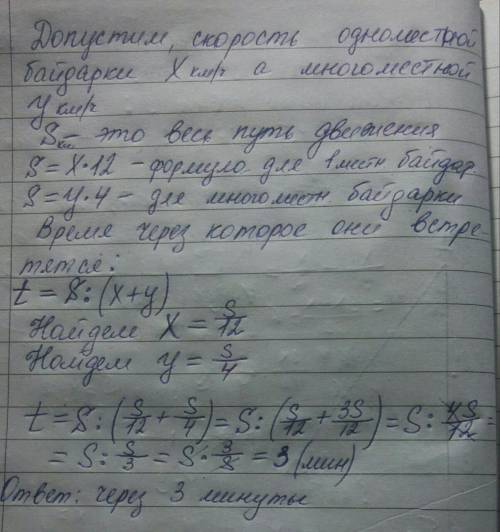 Допустим, скорость одноместной
байдарки X км/ч а многоместной
y км/ч
S км – это весь путь движения
S = X·12 – формуло для 1 местн байдар.
S = y·4 – для многоместн. байдарки
Время через которое они встре-
тятся:
t = S : (x+y)
Найдем X = S/12
Найдем y = S/4
t = S : (S/12 + S/4) = S : (S/12 + 3S/12) = S : 4S/12 =
= S : S/3 = S · 3/S = 3 (мин)
Ответ: через 3 минуты